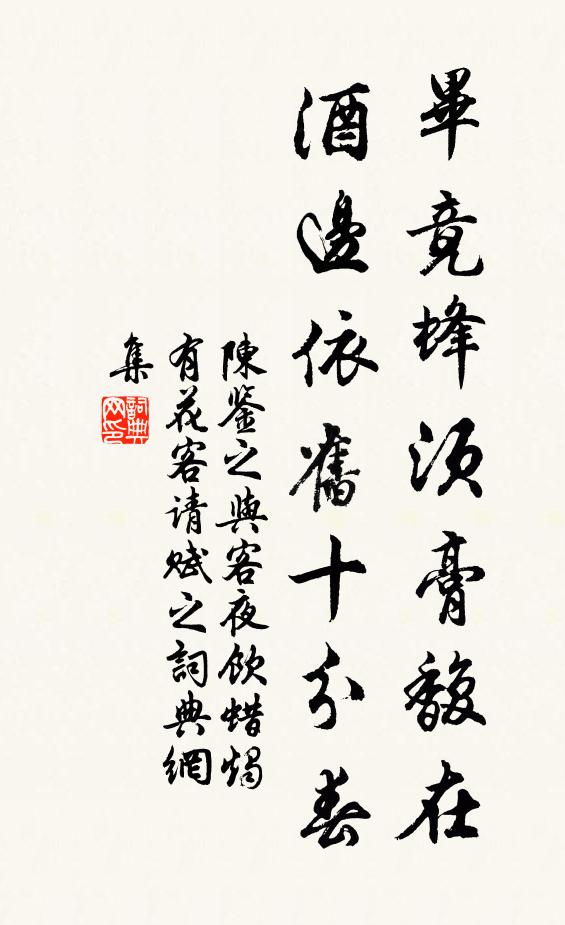 畢竟蜂須膏馥在
酒邊依舊十分春
陳鉴之與客夜飲蜡燭
有花客请赋之詞典網
集
詞典网印